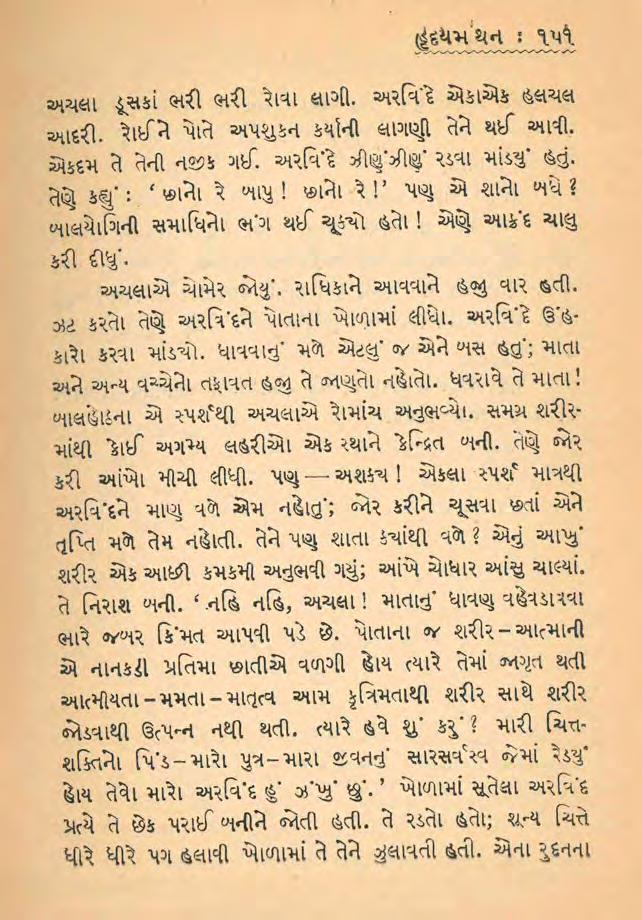 હૃદયમંથન : ૧૫૧
અચલા ડૂસકાં ભરી ભરી રોવા લાગી. અરવિંદે એકાએક હલચલ
આદરી. રોઈને પોતે અપશુકન કર્યાની લાગણી તેને થઈ આવી.
એકદમ તે તેની નજીક ગઈ. અરવિંદે ઝીણુંઝીણું રડવા માંડ્યું હતું.
તેણે કહ્યું : ‘છાનો રે બાપુ ! છાનો રે !’ પણ એ શાનો બધે ?
બાલયોગિની સમાધિનો ભંગ થઈ ચૂક્યો હતો ! એણે આક્રંદ ચાલુ
કરી દીધું.
અચલાએ ચોમેર જોયું. રાધિકાને આવવાને હજી વાર હતી.
ઝટ કરતો તેણે અરવિંદને પોતાના ખોળામાં લીધો. અરવિંદે ઉંહ-
કારો કરવા માંડ્યો. ધાવવાનું મળે એટલું જ એને બસ હતું; માતા
અને અન્ય વચ્ચેનો તફાવત હજી તે જાણતો નહોતો. ધવરાવે તે માતા !
બાલહોઠના એ સ્પર્શથી અચલાએ રોમાંચ અનુભવ્યો. સમગ્ર શરીર-
માંથી કોઈ અગમ્ય લહરીઓ એક સ્થાને કેન્દ્રિત બની. તેણે જોર
કરી આંખો મીચી લીધી. પણ — અશક્ય ! એકલા સ્પર્શ માત્રથી
અરવિંદને માણ વળે એમ નહોતું; જોર કરીને ચૂસવા છતાં એને
તૃપ્તિ મળે તેમ નહોતી. તેને પણ શાતા ક્યાંથી વળે ? એનું આખું
શરીર એક આછી કમકમી અનુભવી ગયું; આંખે ચોધાર આંસુ ચાલ્યાં.
તે નિરાશ બની. ‘નહિ નહિ, અચલા ! માતાનું ધાવણ વહેવડાવવા
ભારે જબર કિંમત આપવી પડે છે. પોતાના જ શરીર – આત્માની
એ નાનકડી પ્રતિમા છાતીએ વળગી હોય ત્યારે તેમાં જાગૃત થતી
આત્મીયતા – મમતા – માતૃત્વ આમ કૃત્રિમતાથી શરીર સાથે શરીર
જોડવાથી ઉત્પન્ન નથી થતી. ત્યારે હવે શું કરું ? મારી ચિત્ત-
શક્તિનો પિંડ – મારો પુત્ર – મારા જીવનનું સારસર્વસ્વ જેમાં રેડ્યું
હોય તેવો મારો અરવિંદ હું ઝંખું છું.’ ખોળામાં સૂતેલા અરવિંદ
પ્રત્યે તે છેક પરાઈ બનીને જોતી હતી. તે રડતો હતો; શૂન્ય ચિત્તે
ધીરે ધીરે પગ હલાવી ખોળામાં તે તેને ઝુલાવતી હતી. એના રુદનના